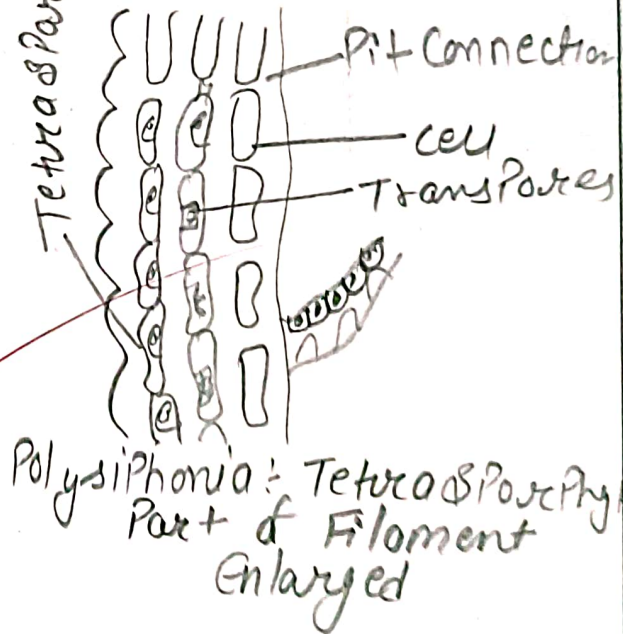 TetraSPor
Pit Connection
Cell
TransPores
PolysiPhonia:- TetraSPorPhy
Part of Filament
Enlarged